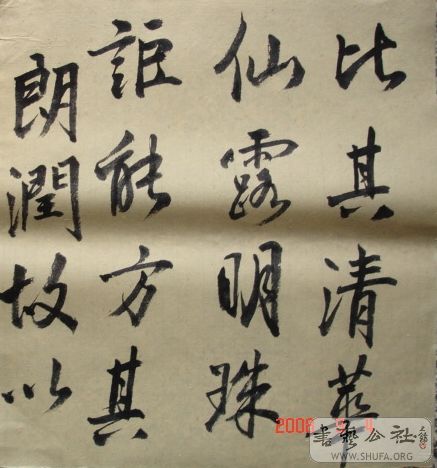 比其清華
仙露明珠
詎能方其
朗潤故以
書藝公社
WWW.SHUFA.ORG